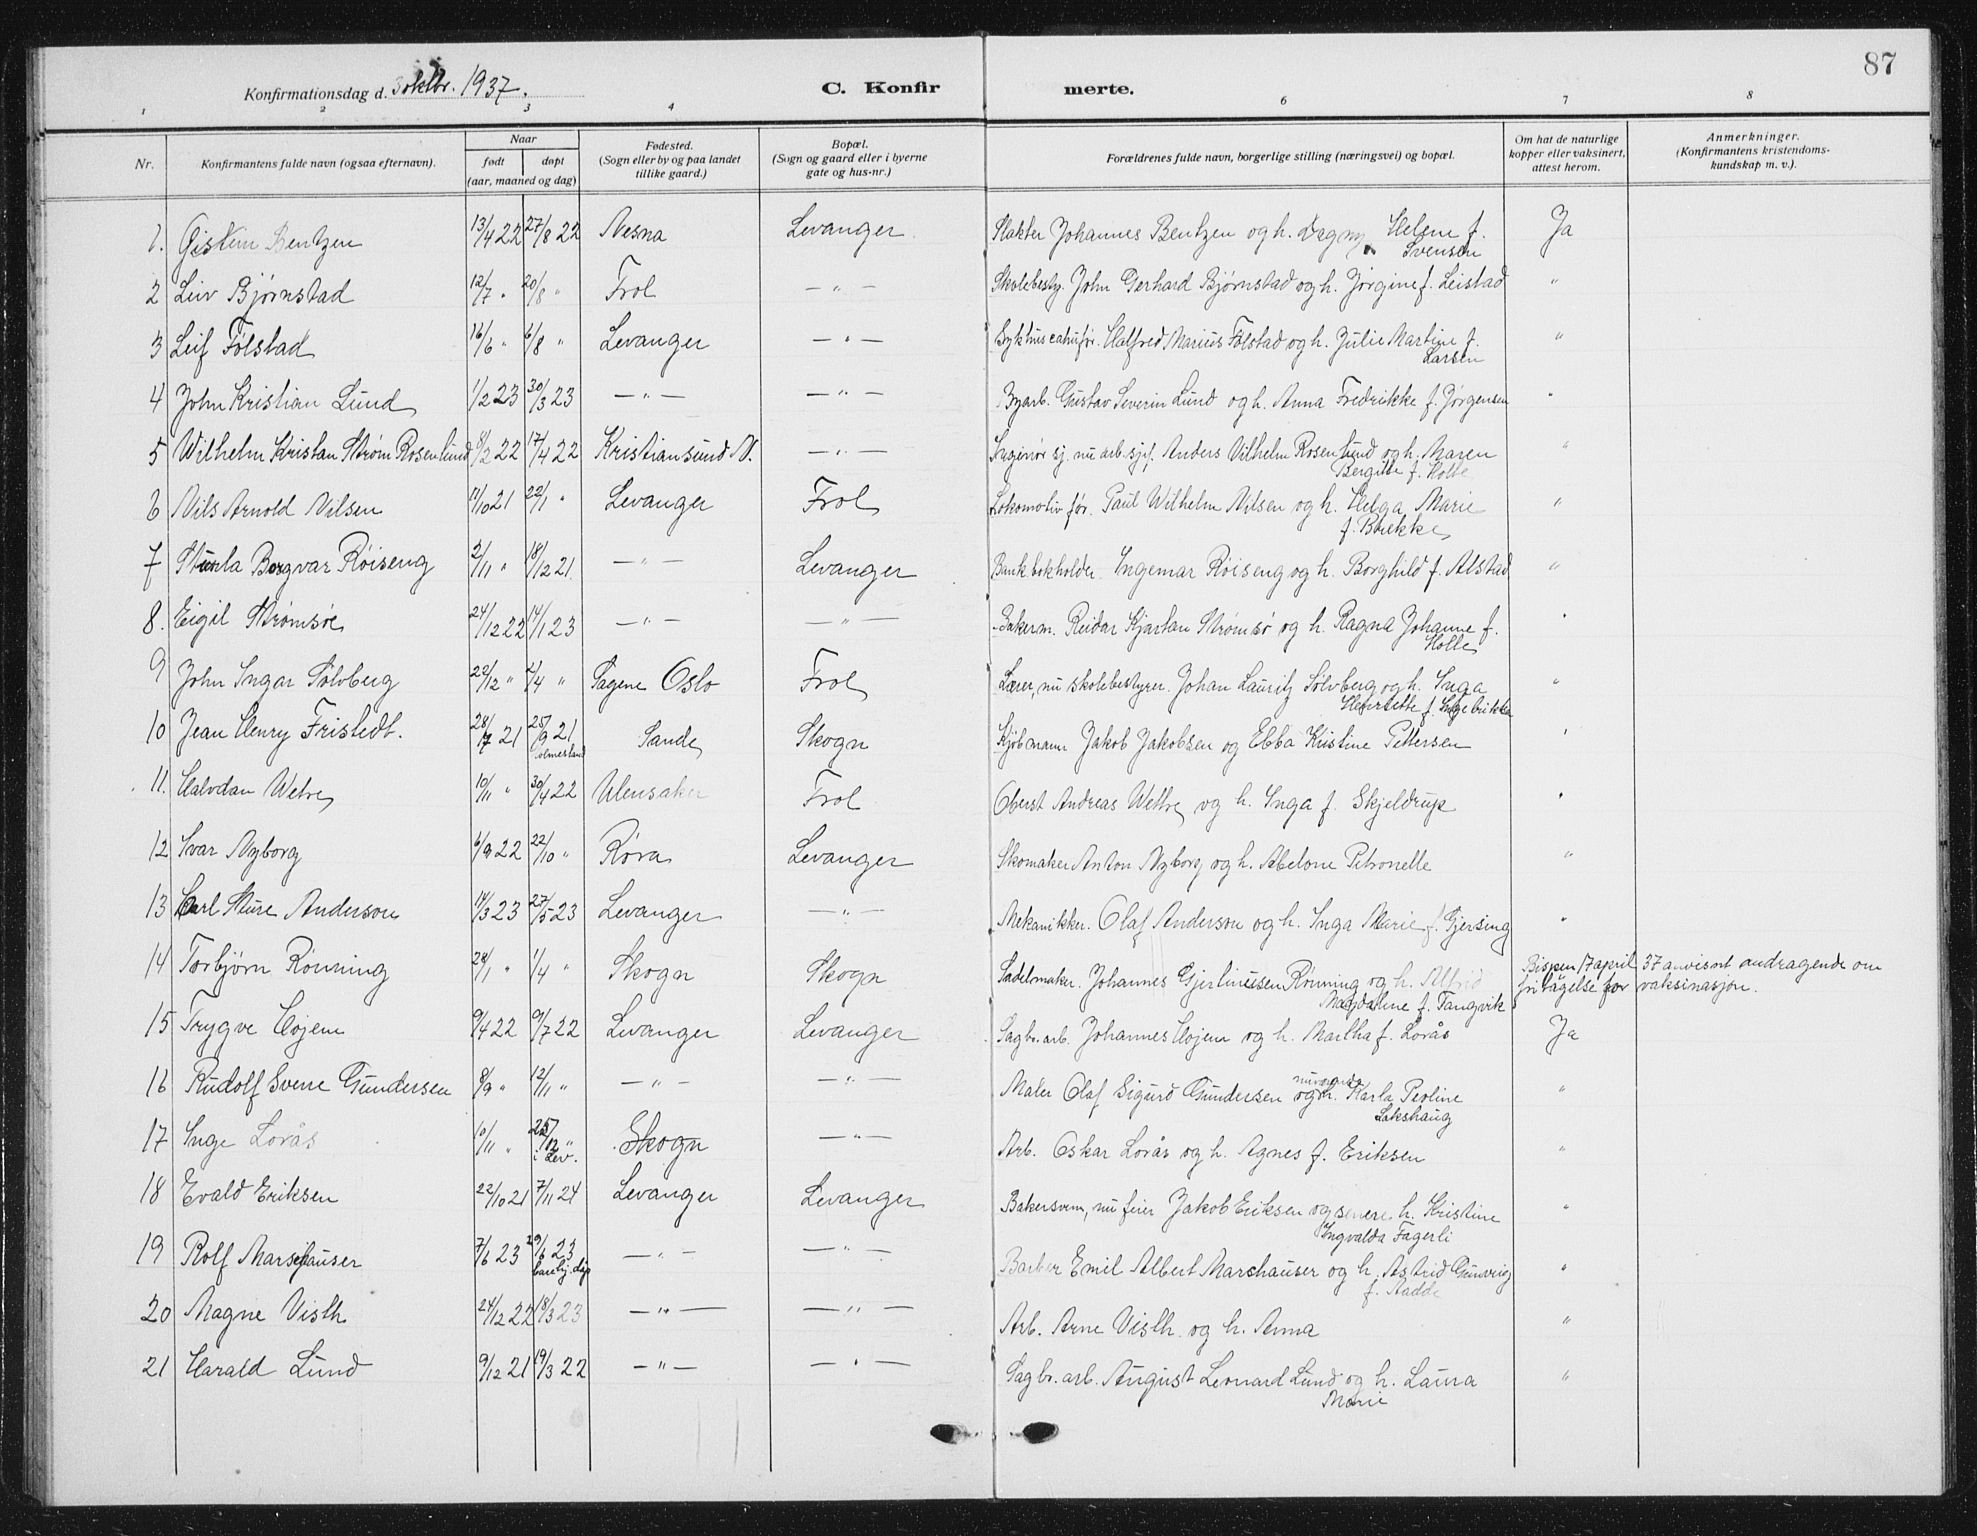 87
Konfirmationsdag d. 3 oktbr. 1937.
C. Konfirmerte.
1 2 3 4 6 7 8
Nr. Konfirmantens fulde navn (ogsaa efternavn). Naar født døpt (aar, maaned og dag) Fødested. (Sogn eller by og paa landet tillike gaard.) Bopæl. (Sogn og gaard eller i byerne gate og hus-nr.) Forældrenes fulde navn, borgerlige stilling (næringsvei) og bopæl. Om hat de naturlige kopper eller vaksinert, attest herom. Anmerkninger. (Konfirmantens kristendomskundskap m. v.).
1. Bentzen 13/4 22 27/8 22 Nesna Levanger Slakter Johannes Bentzen og h. Dagny Helene f. Svensen Ja
2 Leiv Bjørnstad 12/7 " 20/8 " Frol — " — Skolebesty. John Gerhard Bjørnstad og h. Jørgine f. Leistad "
3 Leif Følstad 16/6 " 6/8 " Levanger — " — Halfred Marius Følstad og h. Julie Martine f. Larsen "
4 John Kristian Lund 1/2 23 30/3 23 — " — — " — Byarb. Gustav Severin Lund og h. Anna Fredrikke f. Jørgensen "
5 Wilhelm Kristian Strøm Rosenlund 8/2 22 17/4 22 Kristiansund N. — " — Ingeniør sj. nu arb.sjef. Anders Vilhelm Rosenlund og h. Maren Bergitte f. Holte "
6 Nils Arnold Nilsen 11/10 21 22/1 " Levanger Frol Lokomotivfør. Paul Wilhelm Nilsen og h. Helga Marie f. Brekke "
7 Sturla Borgvar Røiseng 2/11 " 18/12 21 — " — Levanger Bankbokholder. Ingemar Røiseng og h. Borghild f. Alstad "
8. Eigil Strømsøe 24/12 22 14/1 23 — " — — " — Bakerm. Reidar Kjartan Strømsø og h. Ragna Johanne f. Holte "
9 John Ingar Sølvberg 22/12 " 2/4 " Sagene Oslo Frol Lærer, nu skolebestyrer. Johan Lauritz Sølvberg og h. Inga Henriette f. Ingebrikten "
10 Jean Henry Fristedt. 28/7 21 25/9 21 Sande Skogn Kjøbmann Jakob Jakobsen og Ebba Kristine Pettersen "
11. Halvdan Wetre 10/11 " 30/4 22 Ulensaker Frol Oberst Andreas Wettre og h. Inga f. Skjeldrup "
12 Ivar Nyborg 6/9 22 22/10 " Røra Levanger Skomaker Anton Nyborg og h. Abelone Petronelle "
13 Carl Sture Anderson 14/3 23 27/5 23 Levanger — " — Mekanikker. Olaf Anderson og h. Inga Marie f. Gjersing "
14 Torbjørn Rønning 28/1 " 1/4 " Skogn Skogn Sadelmaker. Johannes Gjertinusen Rønning og h. Alfrid Magdalene f. Tangvik Bispen 17 april 37 anvisnt andragende om fritagelse for vaksinasjon.
15 Trygve Hojem 9/4 22 9/7 22 Levanger Levanger Sagbr. arb. Johannes Hojem og h. Martha f. Lorås Ja
16 Rudolf Sverre Gundersen 8/9 " 12/11 " — " — — " — Maler Olaf Sigurd Gundersen og nuværende h. Karla Peoline Lakshaug "
17 Inge Lorås 10/11 " 25/12 " i Lev. Skogn — " — Arb. Oskar Lorås og h. Agnes f. Eriksen "
18 Evald Eriksen 22/10 21 7/11 24 Levanger Levanger Bakersvenn, nu feier Jakob Eriksen og senere h. Kristine Ingvalda Fagerli "
19 Rolf Marschauser 7/6 23 29/6 23 — " — — " — Barber Emil Albert Marschauser og h. Astrid Gunvrig f. Aadde "
20 Magne Visth 24/12 22 18/3 23 — " — — " — Arb. Arne Visth og h. Anna "
21 Harald Lund 9/12 21 19/3 22 — " — — " — Sagbr. arb. August Leonard Lund og h. Laura Marie "